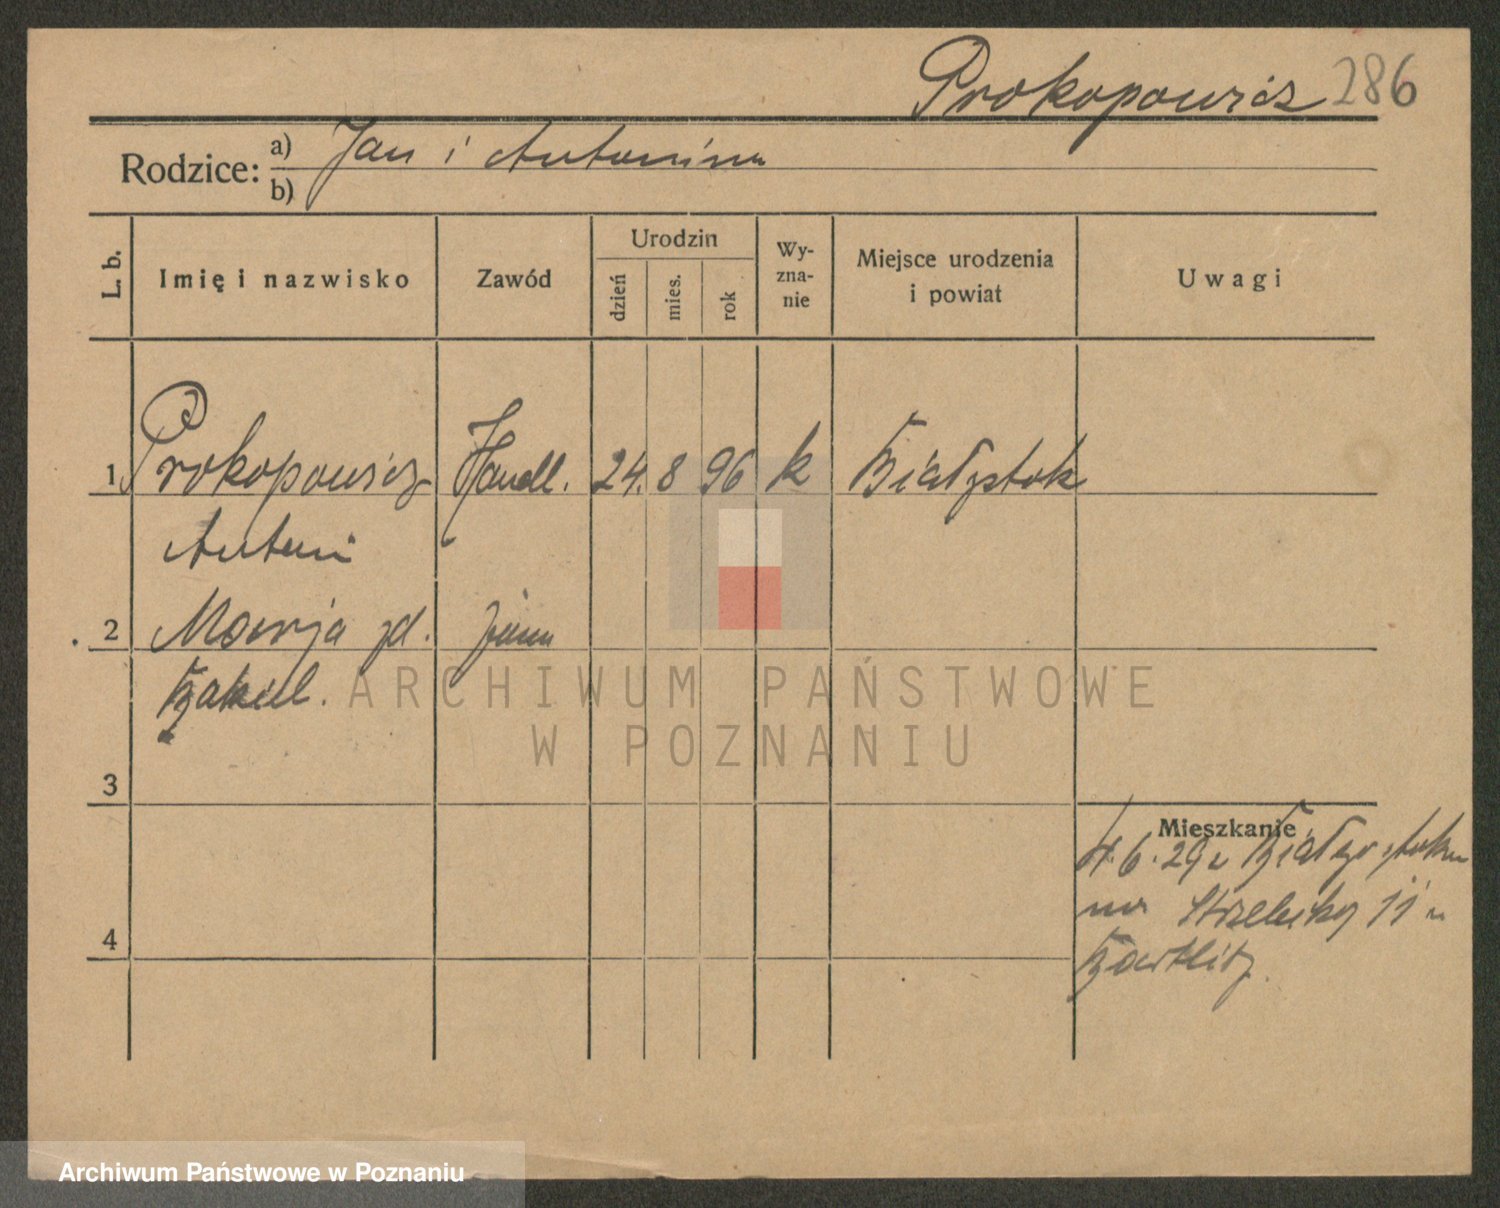 Prokopowicz 286
Rodzice: a) Jan i Antonina
b)
L. b.
Imię i nazwisko
Zawód
Urodzin
dzień
mies.
rok
Wy-
zna-
nie
Miejsce urodzenia
i powiat
Uwagi
1 Prokopowicz Handl. 24. 8 96 k Białystok
Antoni
2 Marja zd. żona
3
Mieszkanie
4.6.29 z Białegostoku
na 11
4
ARCHIWUM PAŃSTWOWE
W POZNANIU
Archiwum Państwowe w Poznaniu